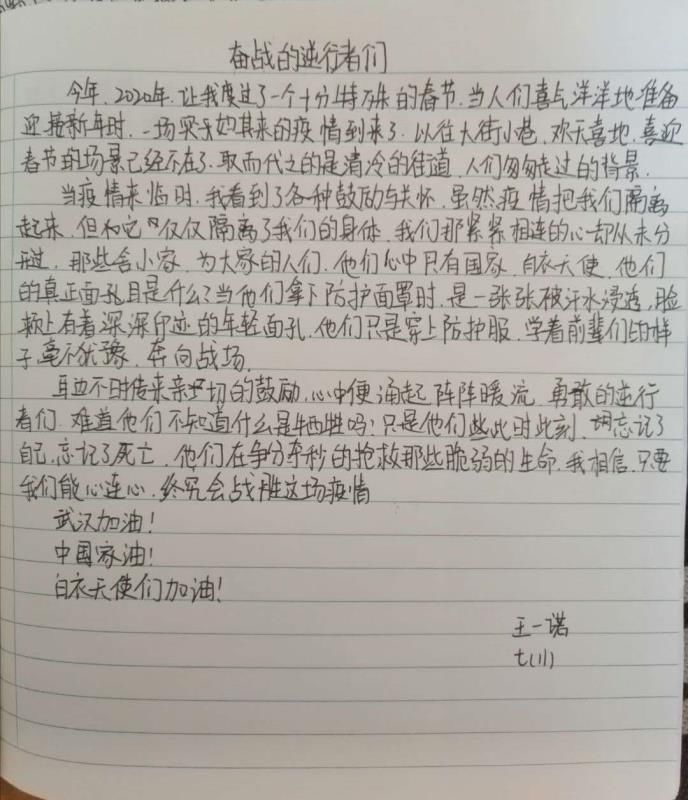 奋战的逆行者们
今年,2020年,让我度过了一个十分特殊的春节,当人们喜气洋洋地准备
迎接新年时,一场突如其来的疫情到来了.以往大街小巷,欢天喜地,喜迎
春节的场景已经不在了.取而代之的是清冷的街道,人们匆匆走过的背景.
当疫情来临时,我看到了各种鼓励与关怀,虽然疫情把我们隔离
起来,但和它仅仅隔离了我们的身体,我们那紧紧相连的心却从未分
开过,那些舍小家,为大家的人们,他们心中只有国家,白衣天使,他们
的真正面孔是什么?当他们拿下防护面罩时,是一张张被汗水浸透,脸
颊上有着深深印迹的年轻面孔.他们只是穿上防护服,学着前辈们的样
子,毫不犹豫,奔向战场.
耳边不时传来亲切的鼓励,心中便涌起阵阵暖流,勇敢的逆行
者们,难道他们不知道什么是牺牲吗?只是他们些此时此刻,忘记了
自己,忘记了死亡,他们在争分夺秒的抢救那些脆弱的生命,我相信,只要
我们能心连心,终究会战胜这场疫情
武汉加油!
中国家油!
白衣天使们加油!
王一诺
七(11)